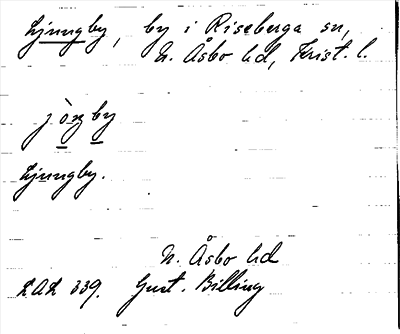 Ljungby, by i Riseberga sn,
N. Åsbo hd, Krist. l.
jòŋ by
Ljungby.
N. Åsbo hd
LAL 339. Gust. Billing